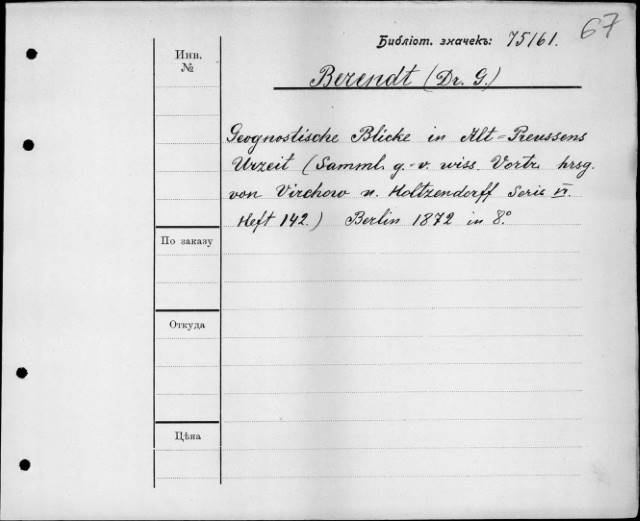 67
Библіот. значекъ: 75161.
Инв.
№
Berendt (Dr. G.)
Geognostische Blicke in Alt=Preussens
Urzeit (Samml. g.-v. wiss. Vortr. hrsg.
von Virchow u. Holtzendorff Serie VI.
Heft 142.) Berlin 1872 in 8.°
По заказу
Откуда
Цѣна